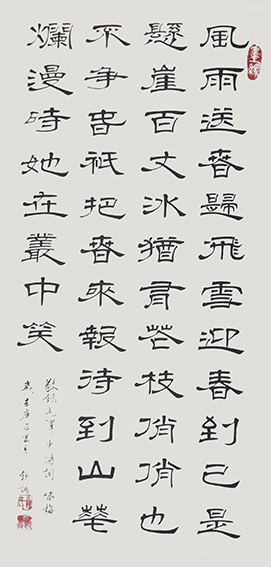 風雨送春歸飛雪迎春到已是
懸崖百丈冰猶有花枝俏俏也
不争春祇把春來報待到山華
爛漫時她在叢中笑
敬錄毛澤東詩詞 咏梅